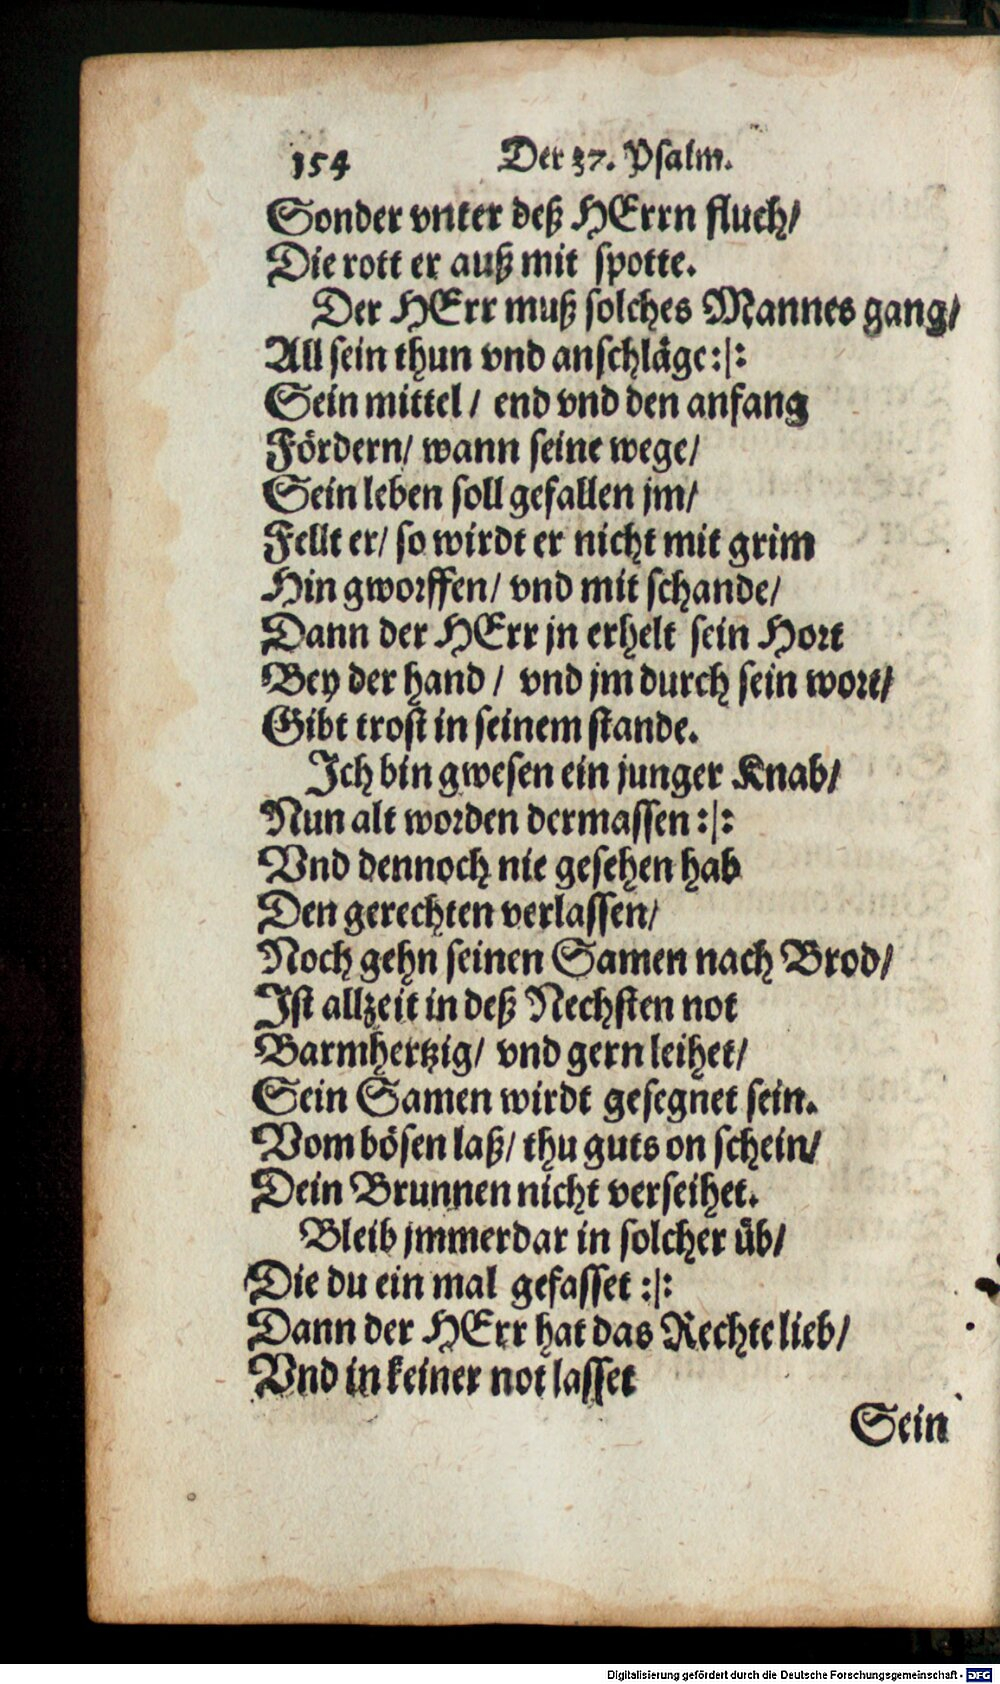 154 Der 37. Psalm.
Sonder vnter deß HErrn fluch/
Die rott er auß mit spotte.
Der HErr muß solches Mannes gang/
All sein thun vnd anschläge:|:
Sein mittel / end vnd den anfang
Fördern/ wann seine wege/
Sein leben soll gefallen jm/
Fellt er/ so wirdt er nicht mit grim
Hin gworffen/ vnd mit schande/
Dann der HErr jn erhelt sein Hort
Bey der hand / vnd jm durch sein wort/
Gibt trost in seinem stande.
Ich bin gwesen ein junger Knab/
Nun alt worden dermassen:|:
Vnd dennoch nie gesehen hab
Den gerechten verlassen/
Noch gehn seinen Samen nach Brod/
Ist allzeit in deß Nechsten not
Barmhertzig/ vnd gern leihet/
Sein Samen wirdt gesegnet sein.
Vom bösen laß/ thu guts on schein/
Dein Brunnen nicht verseihet.
Bleib jmmerdar in solcher üb/
Die du ein mal gefasset :|:
Dann der HErr hat das Rechte lieb/
Vnd in keiner not lasset
Sein
Digitalisierung gefördert durch die Deutsche Forschungsgemeinschaft - DFG